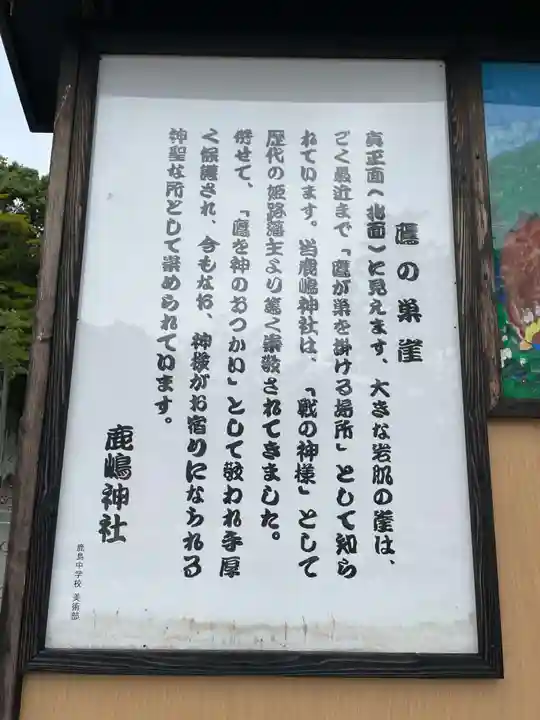 鷹の巣崖
真正面（北面）に見えます、大きな岩肌の崖は、
ごく最近まで「鷹が巣を掛ける場所」として知ら
れています。当鹿嶋神社は、「戦の神様」として
歴代の姫路藩主より篤く崇敬されてきました。
併せて、「鷹を神のおつかい」として敬われ手厚
く保護され、今もなお、神様がお宿りになられる
神聖な所として崇められています。
鹿嶋神社
鹿島中学校 美術部